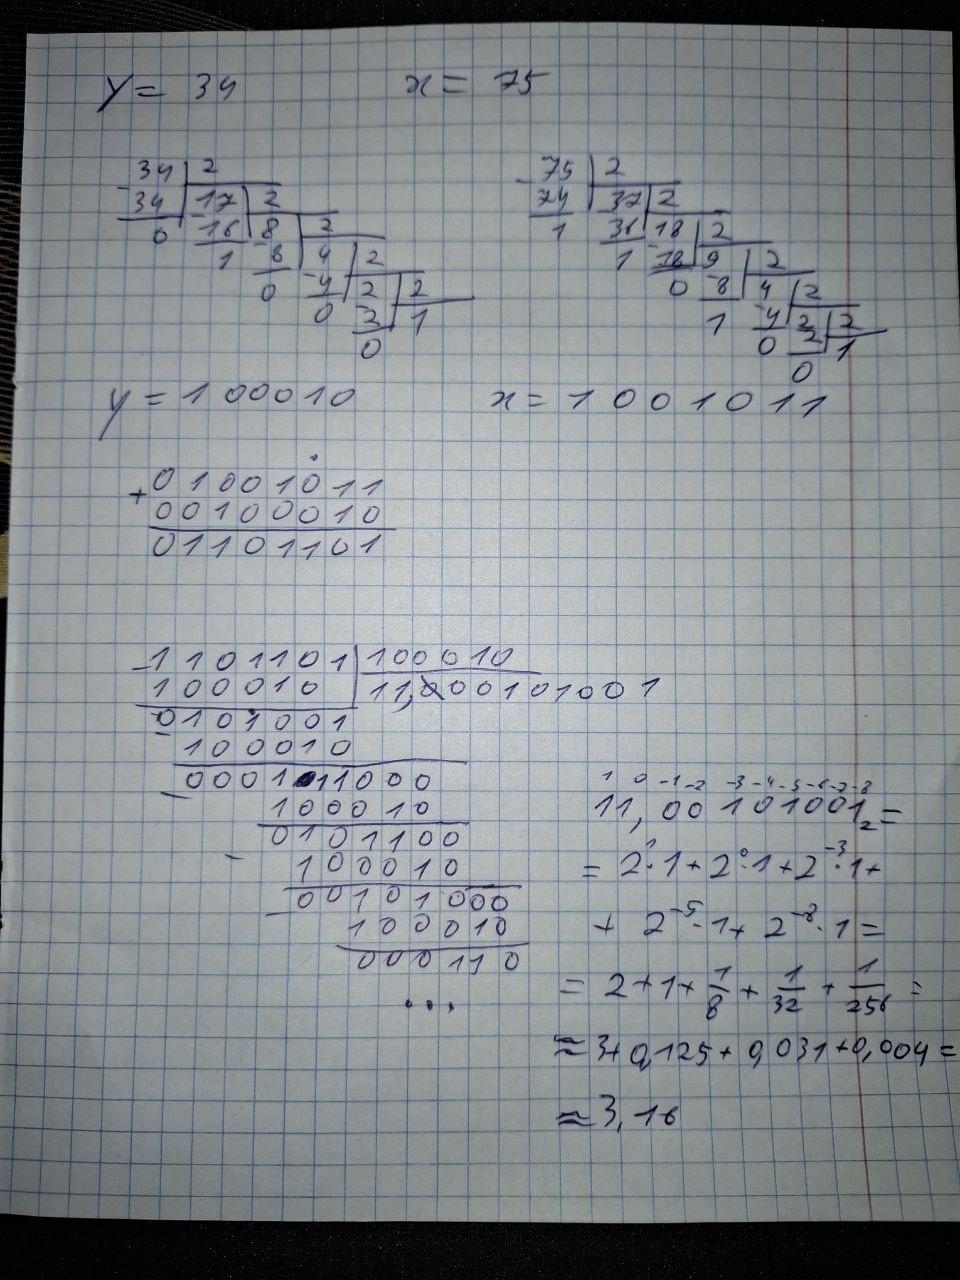 y = 34 x = 75
34 2 75 2
34 17 2 74 37 2
0 16 8 2 1 36 18 2
1 8 4 2 1 18 9 2
0 4 2 2 0 8 4 2
0 2 1 1 4 2 2
0 0 2 1
0
y = 100010 x = 1001011
+ 01001011
00100010
01101101
- 1101101 100010
100010 11,000101001
- 0101001
100010
- 0001011000
100010
- 0101100
100010
- 00101000
100010
000110
...
1 0 -1 -2 -3 -4 -5 -6 -7 -8
11,00101001₂ =
= 2¹·1 + 2⁰·1 + 2⁻³·1 +
+ 2⁻⁵·1 + 2⁻⁸·1 =
= 2 + 1 + 1/8 + 1/32 + 1/256 =
≈ 3 + 0,125 + 0,031 + 0,004 =
≈ 3,16